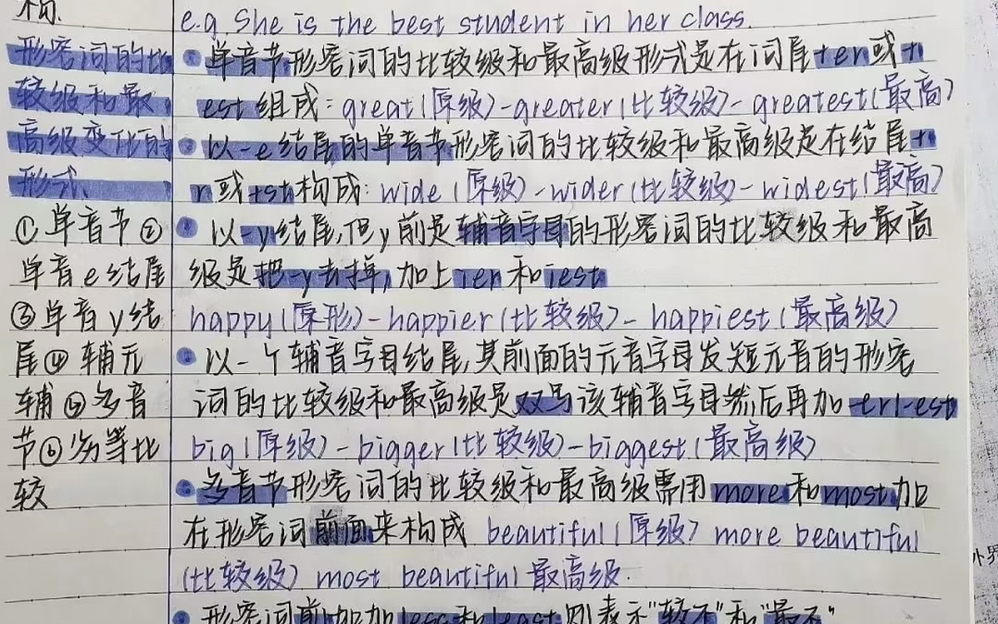 构.
e.g. She is the best student in her class.
形容词的比
较级和最
高级变化的
形式.
① 单音节 ②
单音e结尾
③ 单音y结
尾 ④ 辅元
辅 ⑤ 多音
节 ⑥ 劣等比
较
单音节形容词的比较级和最高级形式是在词尾+er或+
est组成: great(原级)-greater(比较级)-greatest(最高)
以-e结尾的单音节形容词的比较级和最高级是在结尾+
r或+st构成: wide(原级)-wider(比较级)-widest(最高)
以-y结尾,但y前是辅音字母的形容词的比较级和最高
级是把-y去掉,加上ier和iest
happy(原形)-happier(比较级)-happiest(最高级)
以一个辅音字母结尾,其前面的元音字母发短元音的形容
词的比较级和最高级是双写该辅音字母然后再加-er/-est
big(原级)-bigger(比较级)-biggest(最高级)
多音节形容词的比较级和最高级需用more和most加
在形容词前面来构成 beautiful(原级) more beautiful
(比较级) most beautiful 最高级.
形容词前加加less和least则表示"较不"和"最不"
外界